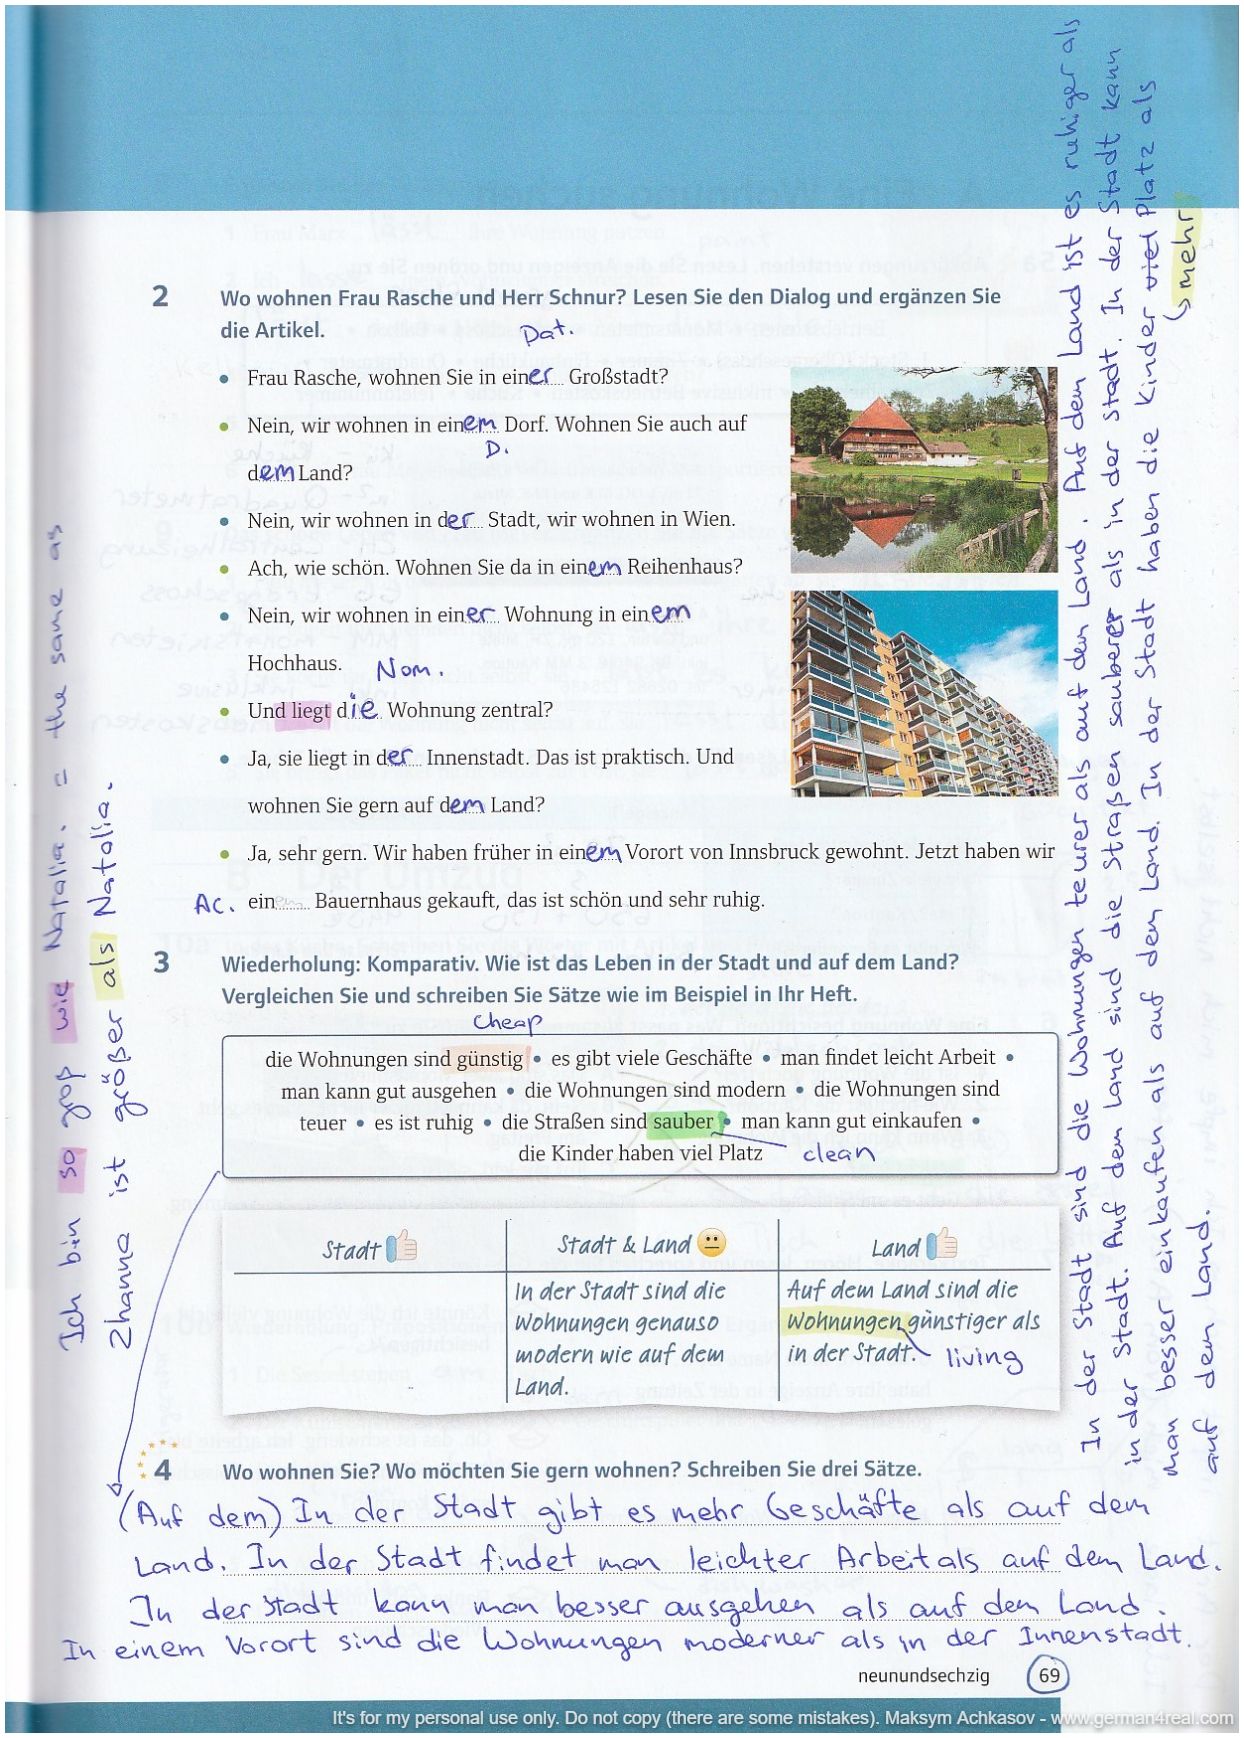 2 Wo wohnen Frau Rasche und Herr Schnur? Lesen Sie den Dialog und ergänzen Sie
die Artikel.
Dat.
• Frau Rasche, wohnen Sie in einer Großstadt?
• Nein, wir wohnen in einem Dorf. Wohnen Sie auch auf
D.
dem Land?
• Nein, wir wohnen in der Stadt, wir wohnen in Wien.
• Ach, wie schön. Wohnen Sie da in einem Reihenhaus?
• Nein, wir wohnen in einer Wohnung in einem
Hochhaus.
Nom.
• Und liegt die Wohnung zentral?
• Ja, sie liegt in der Innenstadt. Das ist praktisch. Und
wohnen Sie gern auf dem Land?
• Ja, sehr gern. Wir haben früher in einem Vorort von Innsbruck gewohnt. Jetzt haben wir
Ac. ein Bauernhaus gekauft, das ist schön und sehr ruhig.
3 Wiederholung: Komparativ. Wie ist das Leben in der Stadt und auf dem Land?
Vergleichen Sie und schreiben Sie Sätze wie im Beispiel in Ihr Heft.
cheap
die Wohnungen sind günstig • es gibt viele Geschäfte • man findet leicht Arbeit •
man kann gut ausgehen • die Wohnungen sind modern • die Wohnungen sind
teuer • es ist ruhig • die Straßen sind sauber • man kann gut einkaufen •
die Kinder haben viel Platz
clean
Stadt
Stadt & Land
Land
In der Stadt sind die
Wohnungen genauso
modern wie auf dem
Land.
Auf dem Land sind die
Wohnungen günstiger als
in der Stadt.
living
4 Wo wohnen Sie? Wo möchten Sie gern wohnen? Schreiben Sie drei Sätze.
(Auf dem) In der Stadt gibt es mehr Geschäfte als auf dem
Land. In der Stadt findet man leichter Arbeit als auf dem Land.
In der Stadt kann man besser ausgehen als auf dem Land.
In einem Vorort sind die Wohnungen moderner als in der Innenstadt.
neunundsechzig 69
Ich bin so groß wie Natalia. = the same as
Zhanna ist größer als Natalia.
In der Stadt sind die Wohnungen teurer als auf dem Land. Auf dem Land ist es ruhiger als
in der Stadt. Auf dem Land sind die Straßen sauberer als in der Stadt. In der Stadt kann
man besser einkaufen als auf dem Land. In der Stadt haben die Kinder viel Platz als
mehr
auf dem Land.
It's for my personal use only. Do not copy (there are some mistakes). Maksym Achkasov - www.german4real.com